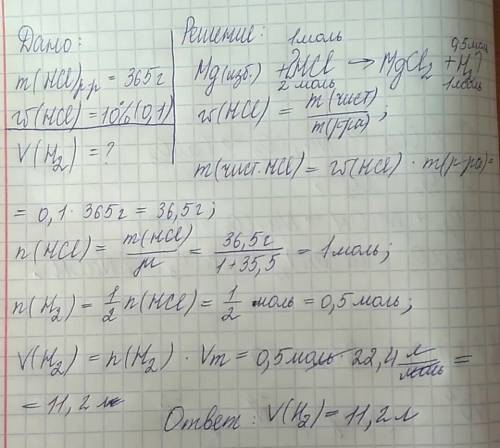 Дано:
m(HCl)р-р = 365г
w(HCl) = 10%(0,1)
V(H₂) = ?
Решение:
1моль 0,5моль
Mg(изб.) + 2HCl → MgCl₂ + H₂↑
2 моль 1моль
w(HCl) = m(чист)/m(р-ра);
m(чист. HCl) = w(HCl) · m(р-ра) =
= 0,1 · 365г = 36,5г;
n(HCl) = m(HCl)/μ = 36,5г/1+35,5 = 1моль;
n(H₂) = 1/2 n(HCl) = 1/2 моль = 0,5моль;
V(H₂) = n(H₂) · Vm = 0,5моль · 22,4 л/моль =
= 11,2 л
Ответ: V(H₂) = 11,2 л